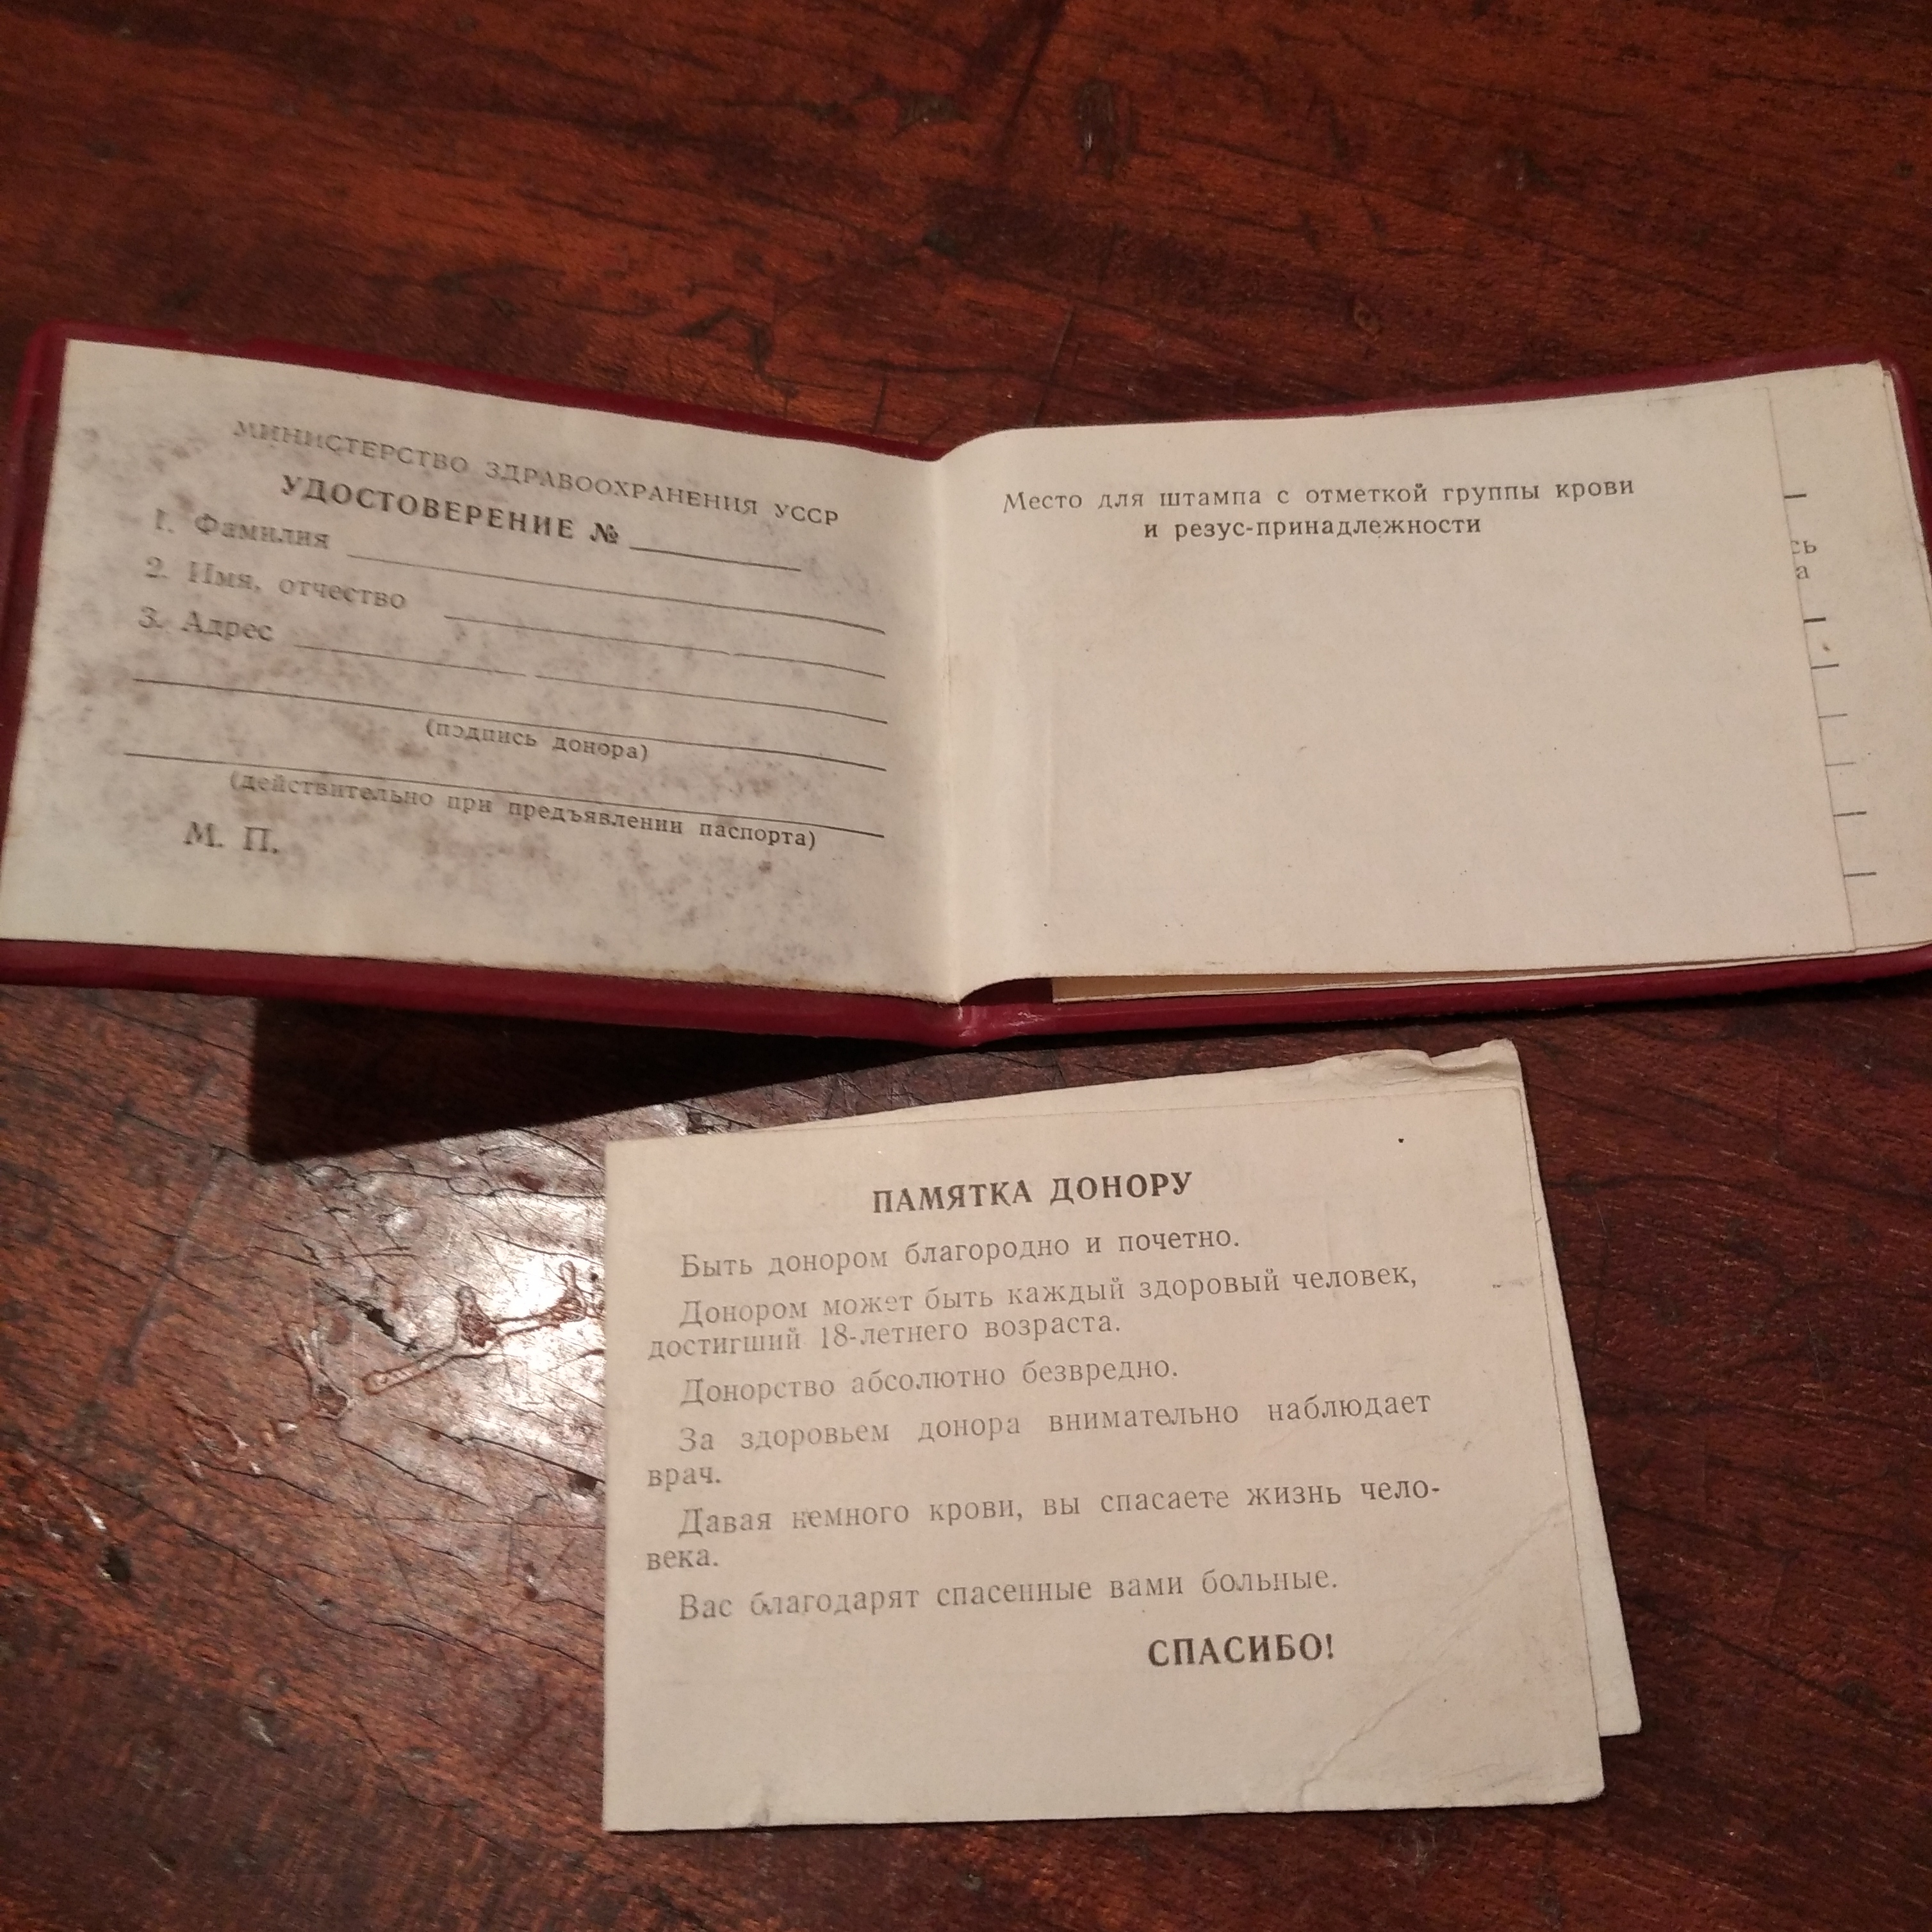 МИНИСТЕРСТВО ЗДРАВООХРАНЕНИЯ УССР
УДОСТОВЕРЕНИЕ №
1. Фамилия
2. Имя, отчество
3. Адрес
(подпись донора)
(действительно при предъявлении паспорта)
М. П.
Место для штампа с отметкой группы крови
и резус-принадлежности
сь
а
ПАМЯТКА ДОНОРУ
Быть донором благородно и почетно.
Донором может быть каждый здоровый человек,
достигший 18-летнего возраста.
Донорство абсолютно безвредно.
За здоровьем донора внимательно наблюдает
врач.
Давая немного крови, вы спасаете жизнь чело-
века.
Вас благодарят спасенные вами больные.
СПАСИБО!